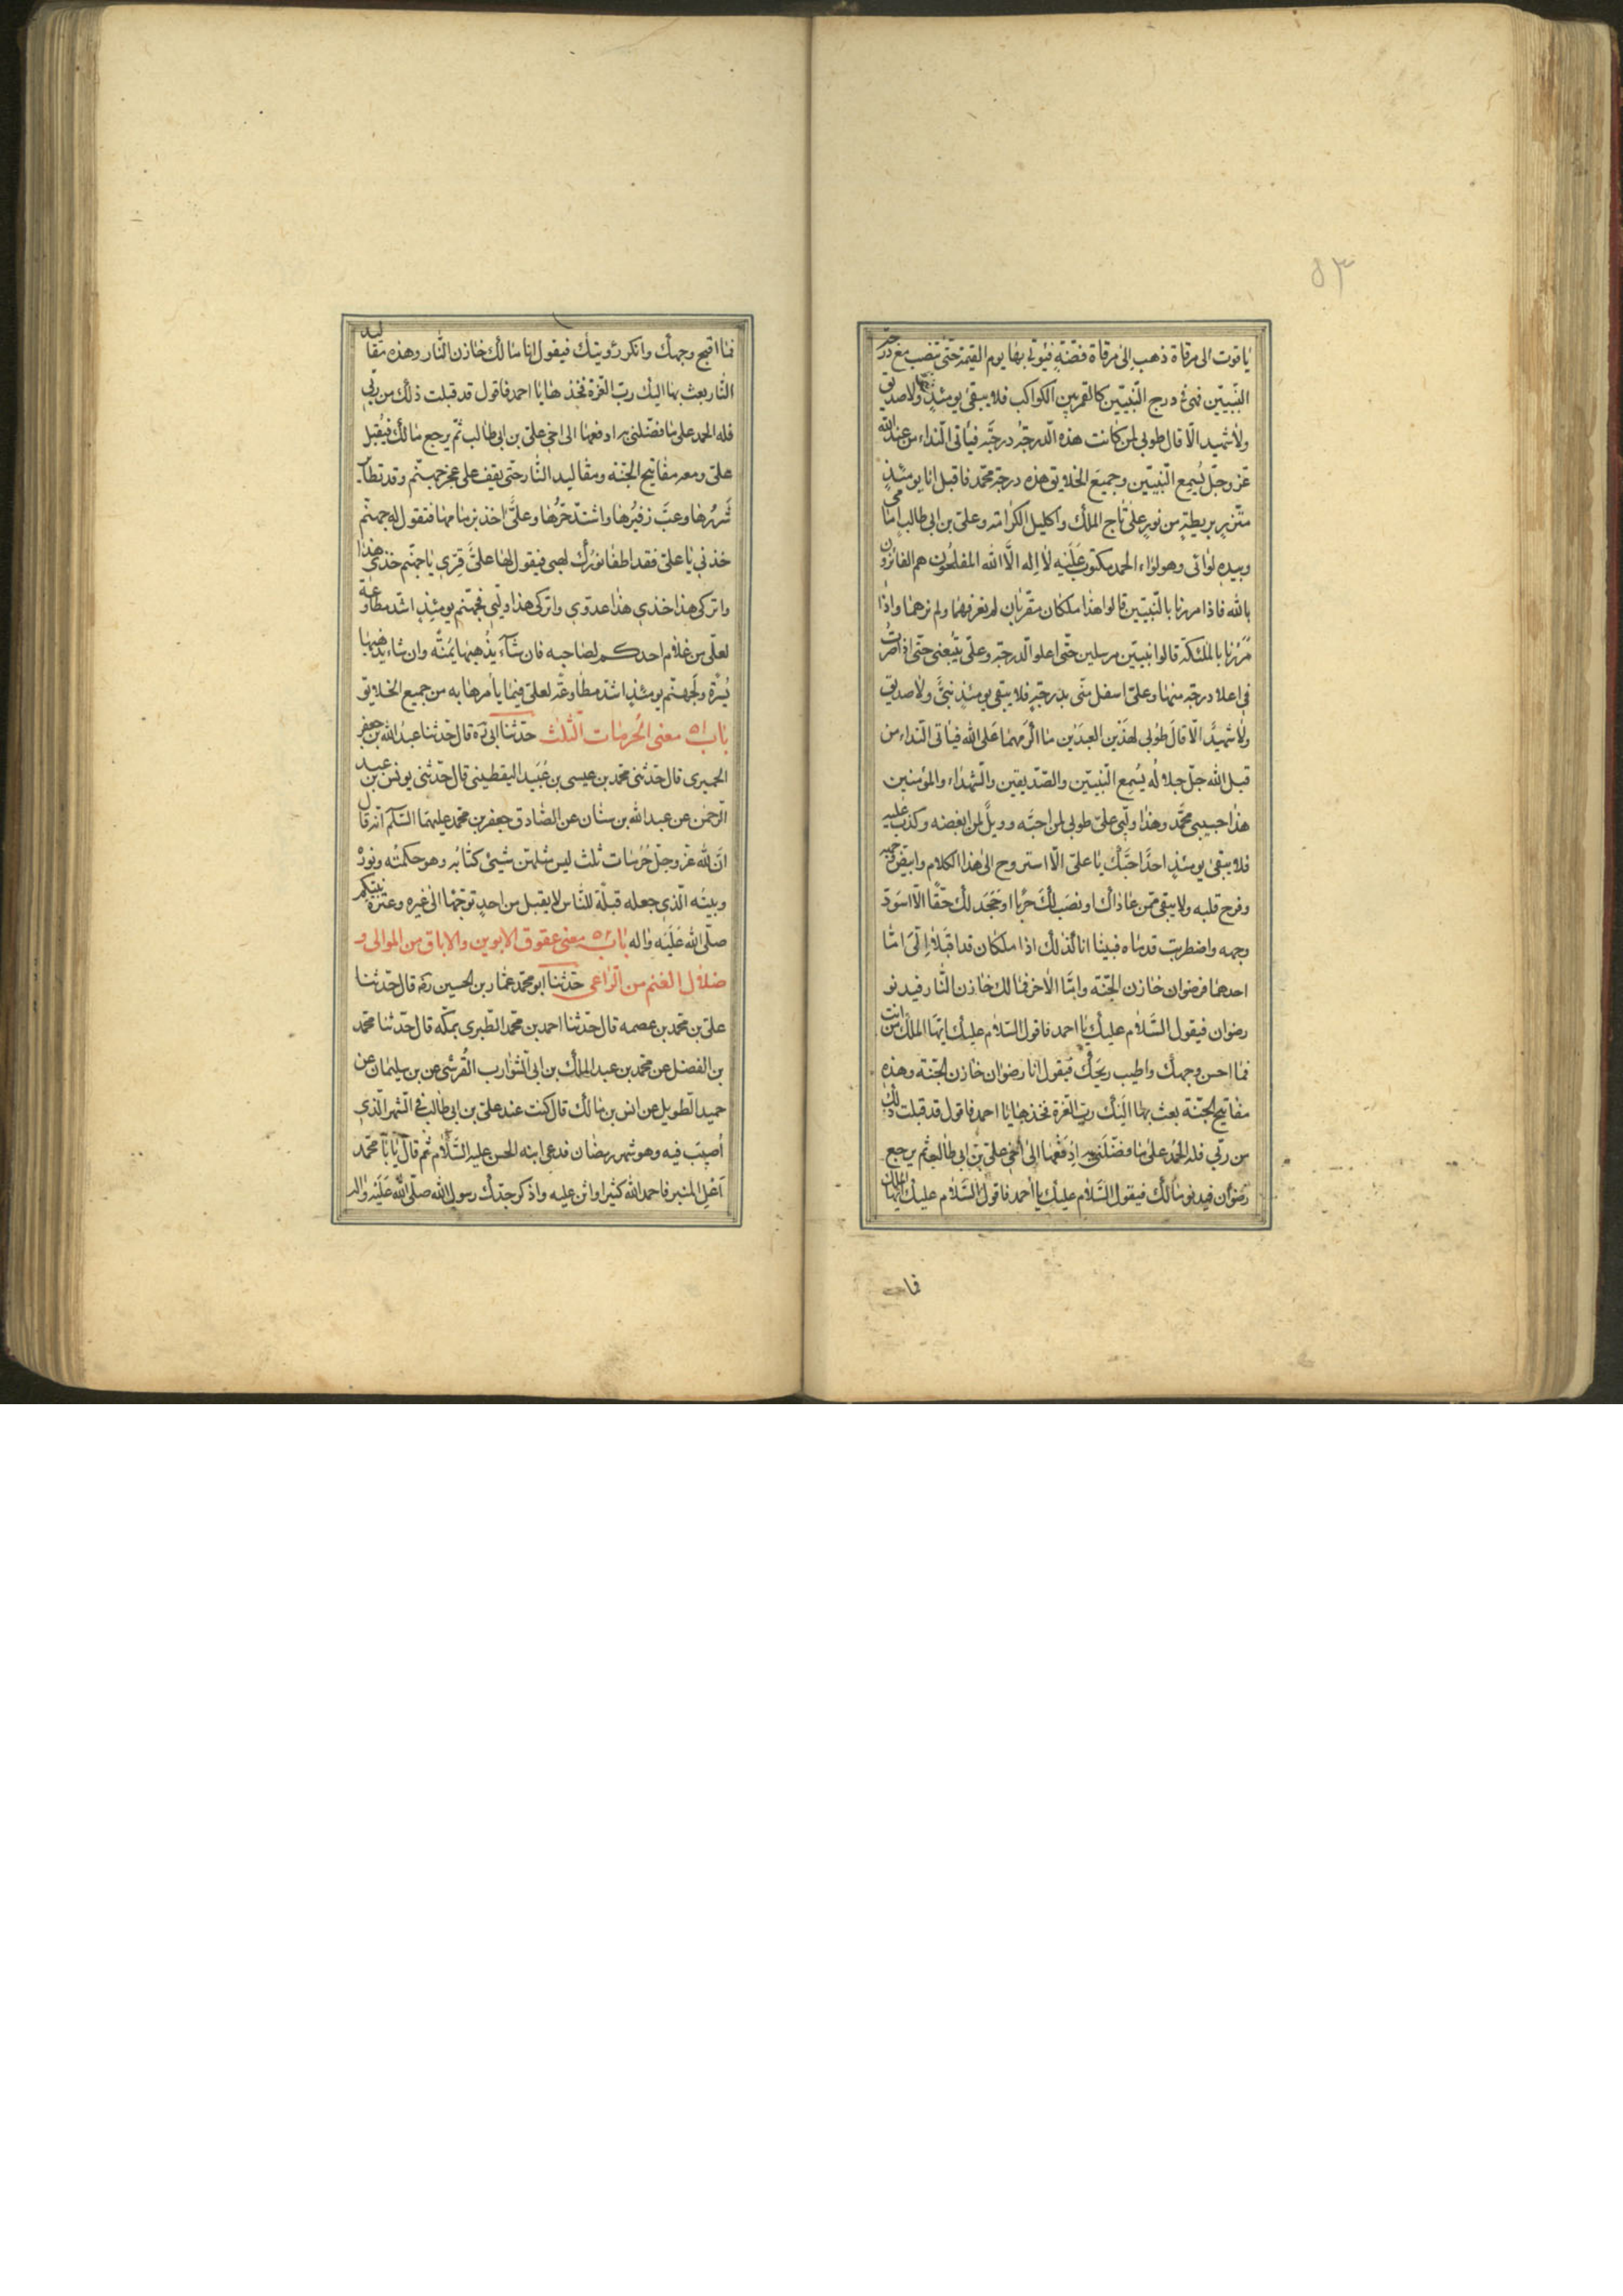 ۵۳
یاقوت الی مرقاة ذهب الی مرقاة فضّة فیوتی بها یوم القیمة حتّی تنصب مع درجة
النّبیّین فهی فی درج النّبیّین کالقمر بین الکواکب فلا یبقی یومئذٍ نبیّ ولا صدیق
ولا شهید الّا قال طوبی لمن کانت هذه الدرجة درجته فیاتی النداء من عند الله
عزّ وجلّ یُسمِع النّبیّین وجمیعَ الخلایق هذه درجة محمّد فاقبل انا یومئذٍ
متّزر بریطةٍ من نورٍ علیّ تاج الملک واکلیل الکرامة وعلیّ بن ابی طالب امامی
وبیده لوائی وهو لواء الحمد مکتوب عَلَیْه لا اله الّا الله المفلحون هم الفائزون
بالله فاذا مررنا بالنّبیّین قالوا هذا ملکان مقرّبان لم نعرفهما ولم نرهما واذا
مررنا بالملئکة قالوا نبیّین مرسلین حتّی اعلو الدرجة وعلیّ یتبعنی حتّی اذا صرتُ
فی اعلا درجة منها وعلیّ اسفل منّی بدرجةٍ فلا یبقی یومئذٍ نبیٌّ ولا صدیق
ولا شهیدٌ الّا قالَ طُوبی لهذَین العبدَیْن ما اکرَمهما عَلی الله فیاتی النداء من
قبل الله جلّ جلاله یُسمِع النّبیّین والصّدیقین والشهداء والمؤمنین
هذا حبیبی محمّد وهذا ولیّی علیّ طوبی لمن احبّه وویلٌ لمن ابغضه وکذب علیه
فلا یبقی یومئذٍ احدٌ احبَّکَ یا علیّ الّا استروح الی هذا الکلام وابیضّ وجهه
وفرح قلبه ولا یبقی ممّن عاداک او نصَب لک حربا او جَحَد لک حقًّا الّا اسودّ
وجهه واضطربت قدماه فبینا انا کذلک اذا ملکان قد اقبَلا اِلَیّ امّا
احدهما فرضوان خازن الجنّة وامّا الاخر فمالک خازن النّار فیدنو
رضوان فیقول السَّلام علیک یا احمد فاقول السّلام علیک ایّها الملک من انت
فما احسن وجهک واطیب ریحکَ فیقول انا رضوان خازن الجنّة وهذه
مفاتیح الجنّة بعث بها الَیْک ربّ العزّة فخذها یا احمد فاقول قد قبلت ذلک
من ربّی فله الحَمد علی ما فضّلنی به ادفعها الی اَخی علیّ بن ابی طالب ثم یرجع
رضوان فیدنو مالک فیقول السَّلام علیک یا احمد فاقول السَّلام علیک ایّها الملک
فما
فما اقبح وجهک وانکر رؤیتک فیقول انا مالک خازن النّار وهذه مقالید
النّار بعث بها الیک ربّ العزّة فخذها یا احمد فاقول قد قبلت ذلک من ربّی
فله الحمد علی ما فضّلنی به ادفعها الی اخی علیّ بن ابی طالب ثمّ یرجع مالک فیُقبل
علیّ ومعه مفاتیح الجنّة ومقالید النّار حتّی یقف علی عجزة جهنّم وقد تطایر
شَررُها وعَبّ زفیرُها واشتدّ حَرُّها وعلیٌّ اخذ بزمامها فتقول له جهنّم
خذنی یا علیّ فقد اطفا نورُک لهبی فیقول لها علیٌّ قِرّی یا جهنّم خذی هذا
واترکی هذا خذی هذا عدوّی واترکی هذا ولیّی فجهنّم یومئذٍ اشدّ مطاوعة
لعلیّ من غلام احدکم لصاحبه فان شآء یُذهبها یَمْنةً وان شاء یذهبها
یُسْرَة ولَجهنّم یومئذٍ اشدّ مطاوعةً لعلیّ فیما یأمرها به من جمیع الخلایق
باب ۵۱ معنی الحُرمات الثّلث حدّثنا ابی ره قال حدّثنا عبد الله بن جعفر
الحمیری قال حدّثنی محمّد بن عیسی بن عُبَید الیقطینی قال حدّثنی یونس بن عبد
الرّحمن عن عبد الله بن سنان عن الصّادق جعفر بن محمّد علیهما السّلام انّه قال
انّ لله عزّ وجلّ حُرمات ثلث لیس مثلهنّ شیئ کتابه وهو حکمته ونوره
وبیته الّذی جعله قبلة للنّاس لا یقبل من احدٍ توجّهًا الی غیره وعترة نبیّکم
صلّی الله عَلَیْه واله باب ۵۲ معنی عقوق الابوین والاباق من الموالی و
ضلال الغنم من الرّاعی حدّثنا ابو محمّد عمّار بن الحسین ره قال حدّثنا
علیّ بن محمّد بن عصمه قال حدّثنا احمد بن محمّد الطّبری بمکّه قال حدّثنا محمّد
بن الفضل عن محمّد بن عبد الملک بن ابی الشّوارب القُرشی عن بن سلیمان عن
حمید الطّویل عن انس بن مالک قال کنت عند علیّ بن ابی طالب فی الشّهر الّذی
اُصیبَ فیه وهو شهر رمضان فدعی ابنه الحسن علیه السّلام ثم قال یا با محمّد
اَعْلِ المنبر فاحمد الله کثیرا واثن علیه واذکر جدّک رسول الله صلّی الله عَلَیْه واله